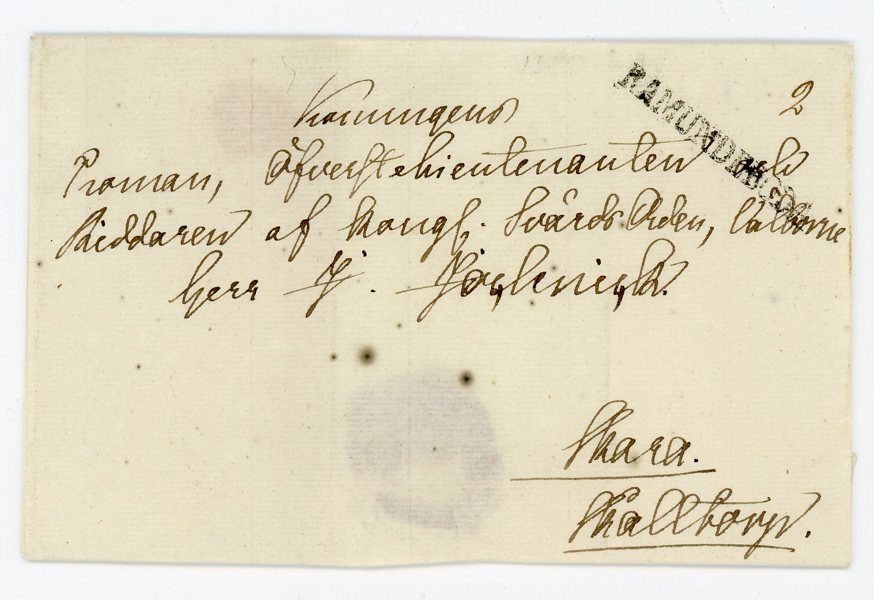 RAMUNDEBODA
2
Konungens
Troman, Öfverstelieutenanten och
Riddaren af Kongl. Svärds Orden, välborne
Herr J.
Skara.
Skålltorp.